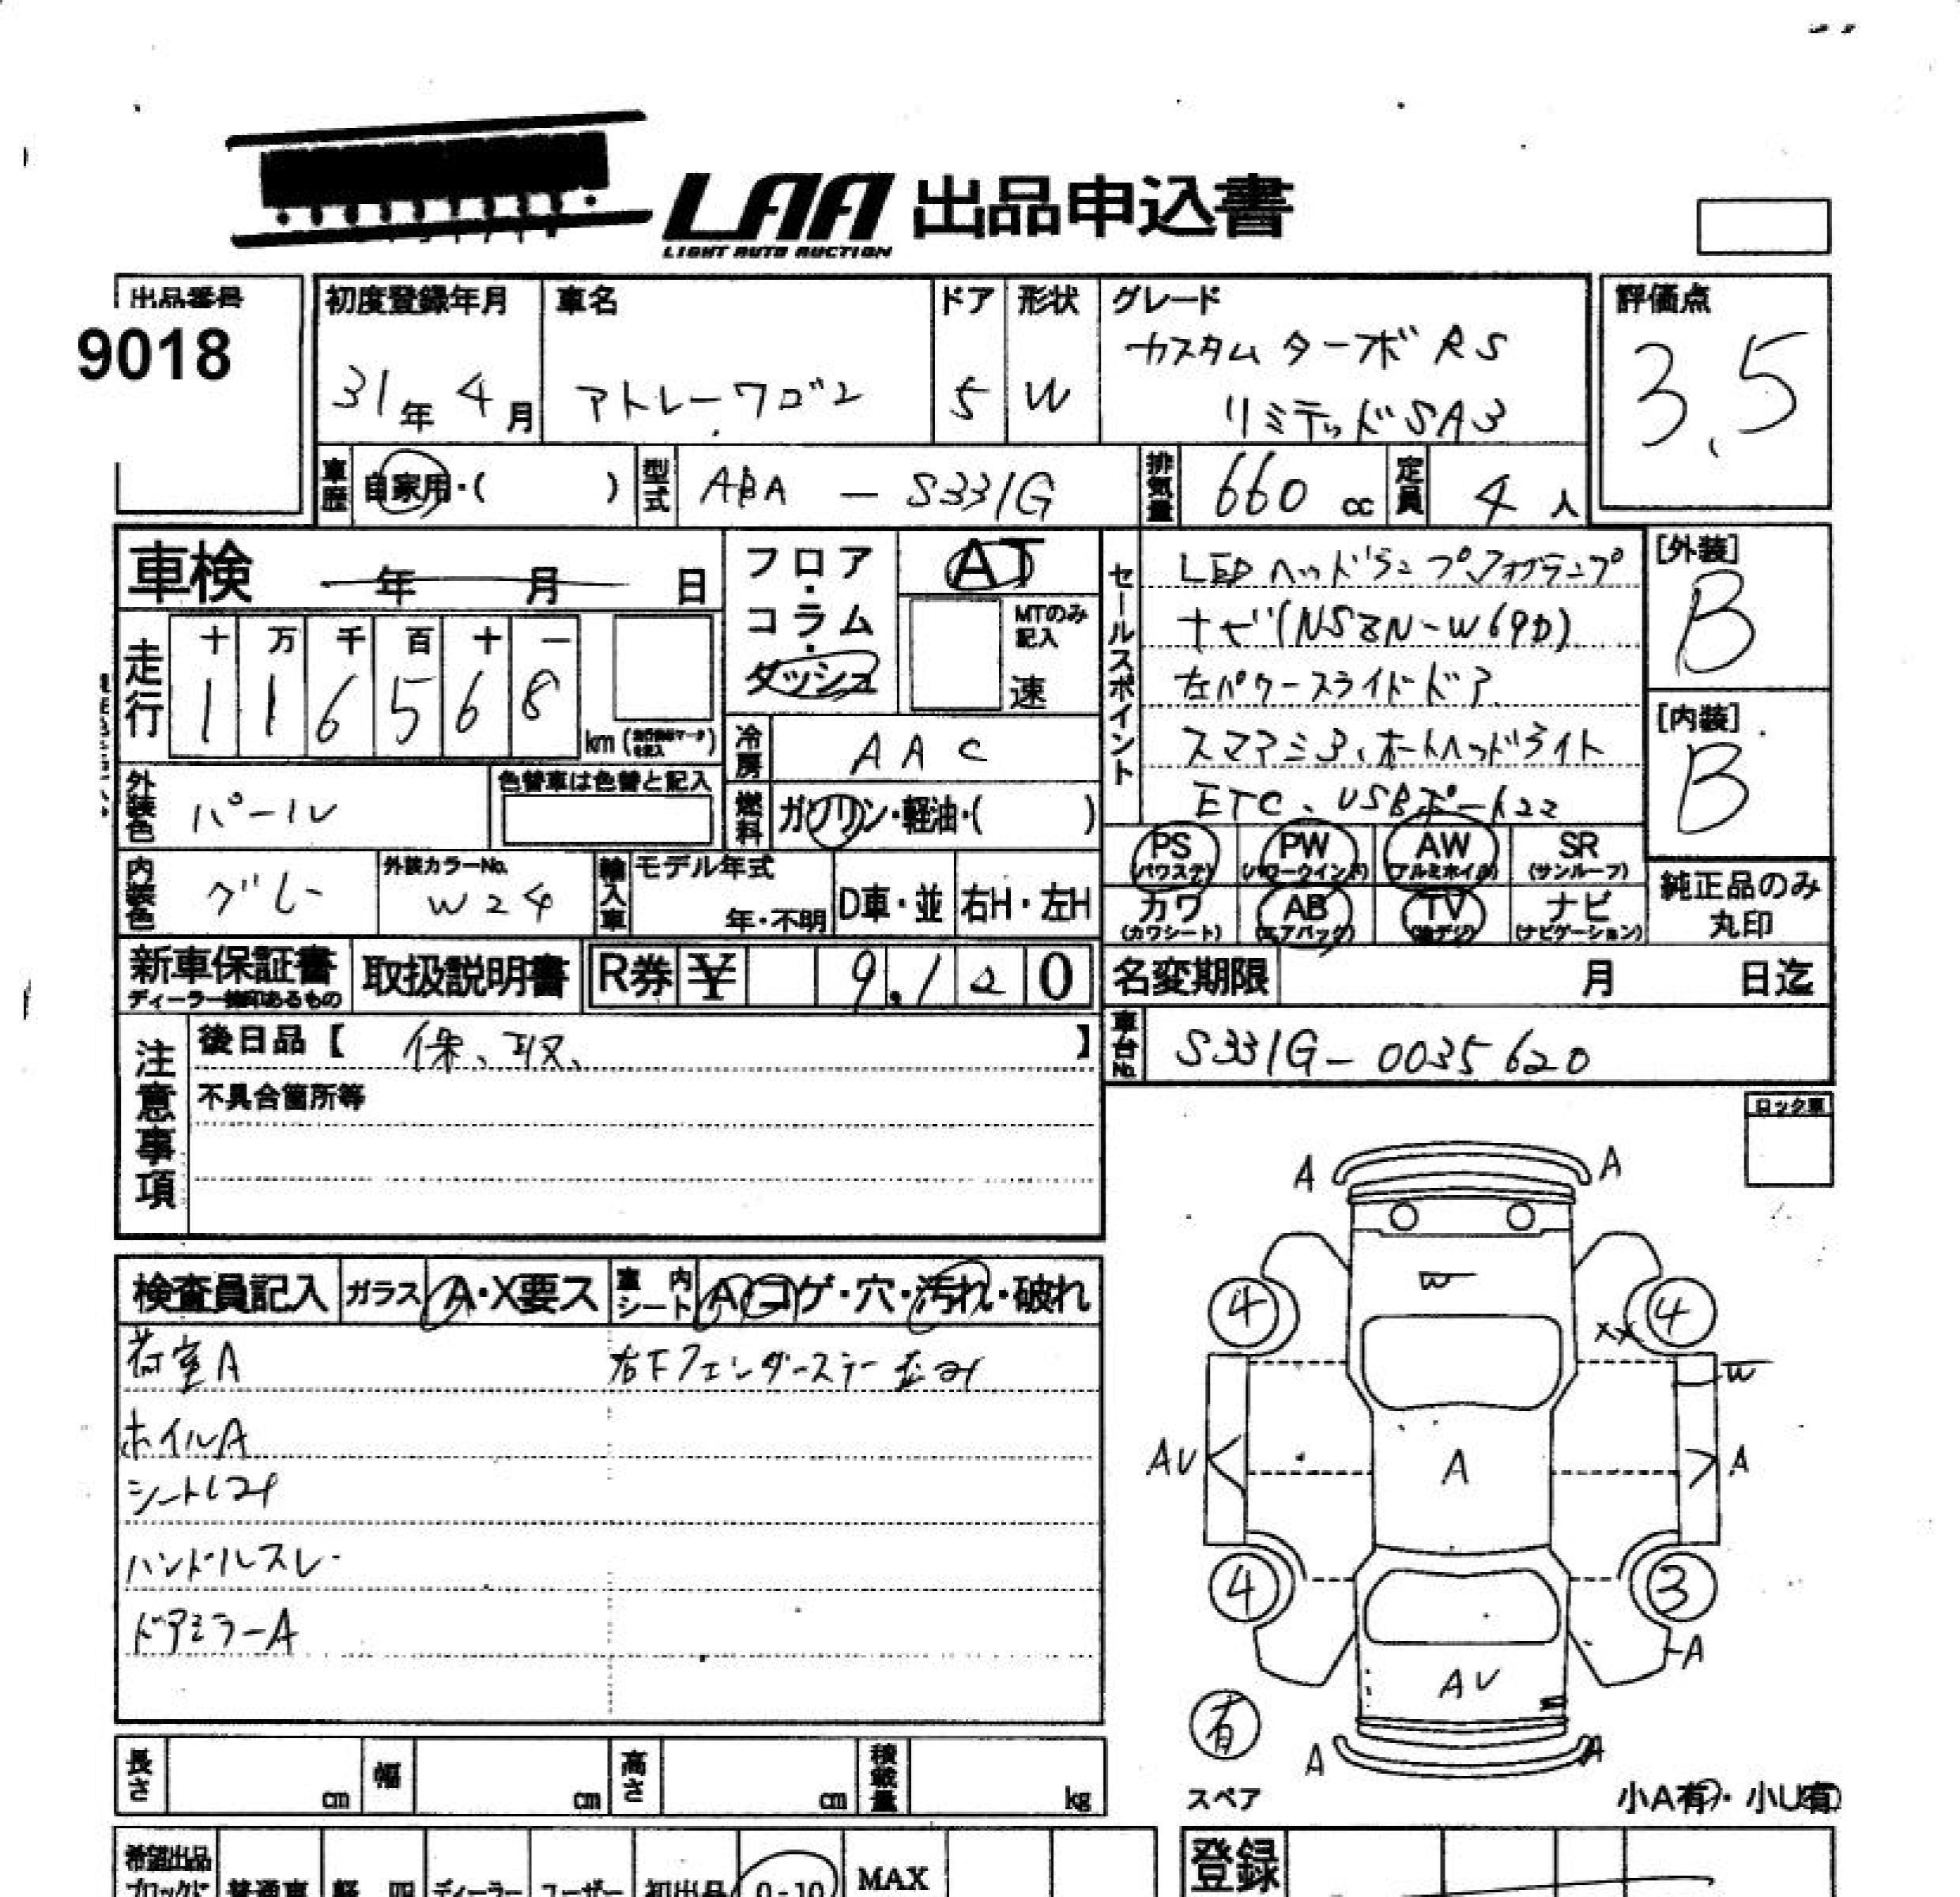 LAA 出品申込書
LIGHT AUTO AUCTION
出品番号
9018
初度登録年月
31年 4月
車名
アトレーワゴン
ドア
5
形状
W
グレード
カスタム ターボ RS
リミテッド SA3
評価点
3.5
車歴
自家用・( )
型式
ABA - S331G
排気量
660 cc
定員
4 人
車検 年 月 日
フロア・コラム・ダッシュ
AT
MTのみ記入
速
走行
十 万 千 百 十 一
1 1 6 5 6 8
km
冷房
AAC
外装色
パール
色替車は色替と記入
燃料
ガソリン・軽油・( )
内装色
グレー
外装カラーNo.
W24
輸入車
モデル年式
年・不明
D車・並
右H・左H
セールスポイント
LEDヘッドランプ,フォグランプ
ナビ(NSZN-W69D)
左パワースライドドア
スマアシ3、オートヘッドライト
ETC、USBポート
[外装]
B
[内装]
B
PS
(パワステ)
PW
(パワーウインド)
AW
(アルミホイル)
SR
(サンルーフ)
カワ
(カワシート)
AB
(エアバック)
TV
(地デジ)
ナビ
(ナビゲーション)
純正品のみ
丸印
新車保証書
取扱説明書
R券 ¥ 9,120
名変期限 月 日迄
注意事項
後日品【 保、取、 】
不具合箇所等
車台No.
S331G-0035620
ロック車
検査員記入
ガラス A・X要ス
車内シート A・コゲ・穴・汚れ・破れ
荷室A
右Fフェンダーステー歪み
ホイルA
シートしみ
ハンドルスレ
ドアミラーA
A A
W
4 4
XX
W
AV A A
4 3
A
AV
有
A A
スペア
小A有・小U有
長さ cm
幅 cm
高さ cm
積載量 kg
希望出品
普通車
軽 四
ディーラー
ユーザー
初出品
0-10
MAX
登録